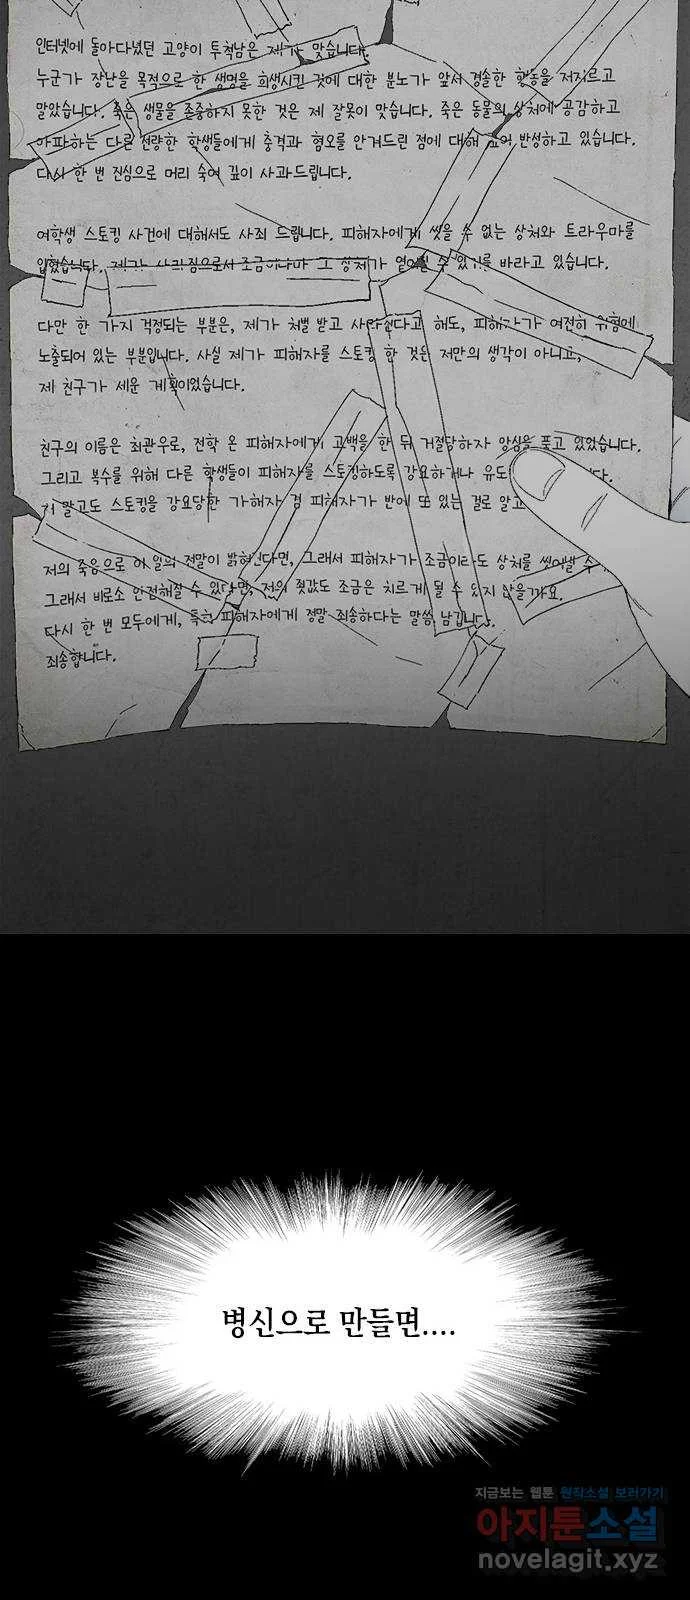 인터넷에 돌아다녔던 고양이 투척남은 제가 맞습니다.
누군가 장난을 목적으로 한 생명을 희생시킨 것에 대한 분노가 앞서 경솔한 행동을 저지르고
말았습니다. 죽은 생물을 존중하지 못한 것은 제 잘못이 맞습니다. 죽은 동물의 상처에 공감하고
아파하는 다른 선량한 학생들에게 충격과 혐오를 안겨드린 점에 대해 깊이 반성하고 있습니다.
다시 한 번 진심으로 머리 숙여 깊이 사과드립니다.
여학생 스토킹 사건에 대해서도 사죄 드립니다. 피해자에게 씻을 수 없는 상처와 트라우마를
입혔습니다. 제가 사라짐으로서 조금이나마 그 상처가 옅어질 수 있기를 바라고 있습니다.
다만 한 가지 걱정되는 부분은, 제가 처벌 받고 사라진다고 해도, 피해자가 여전히 위험에
노출되어 있는 부분입니다. 사실 제가 피해자를 스토킹 한 것은 저만의 생각이 아니고,
제 친구가 세운 계획이었습니다.
친구의 이름은 최관우로, 전학 온 피해자에게 고백을 한 뒤 거절당하자 앙심을 품고 있었습니다.
그리고 복수를 위해 다른 학생들이 피해자를 스토킹하도록 강요하거나 유도
저 말고도 스토킹을 강요당한 가해자 겸 피해자가 반에 또 있는 걸로 알고
저의 죽음으로 이 일의 전말이 밝혀진다면, 그래서 피해자가 조금이라도 상처를 씻어낼 수
그래서 비로소 안전해질 수 있다면, 저의 죗값도 조금은 치르게 될 수 있지 않을까요.
다시 한 번 모두에게, 특히 피해자에게 정말 죄송하다는 말씀 남깁니다.
죄송합니다.
병신으로 만들면....
지금보는 웹툰 원작소설 보러가기
아지툰소설
novelagit.xyz